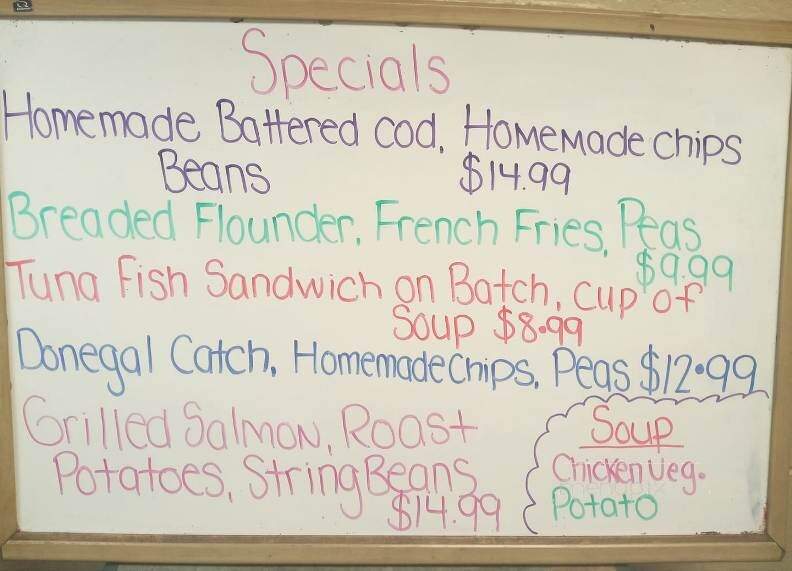 Specials
Homemade Battered cod, Homemade chips
Beans $14.99
Breaded Flounder, French Fries, Peas
$9.99
Tuna Fish Sandwich on Batch, cup of
Soup $8.99
Donegal Catch, Homemade Chips, Peas $12.99
Grilled Salmon, Roast
Potatoes, String Beans
$14.99
Soup
Chicken Veg.
Potato